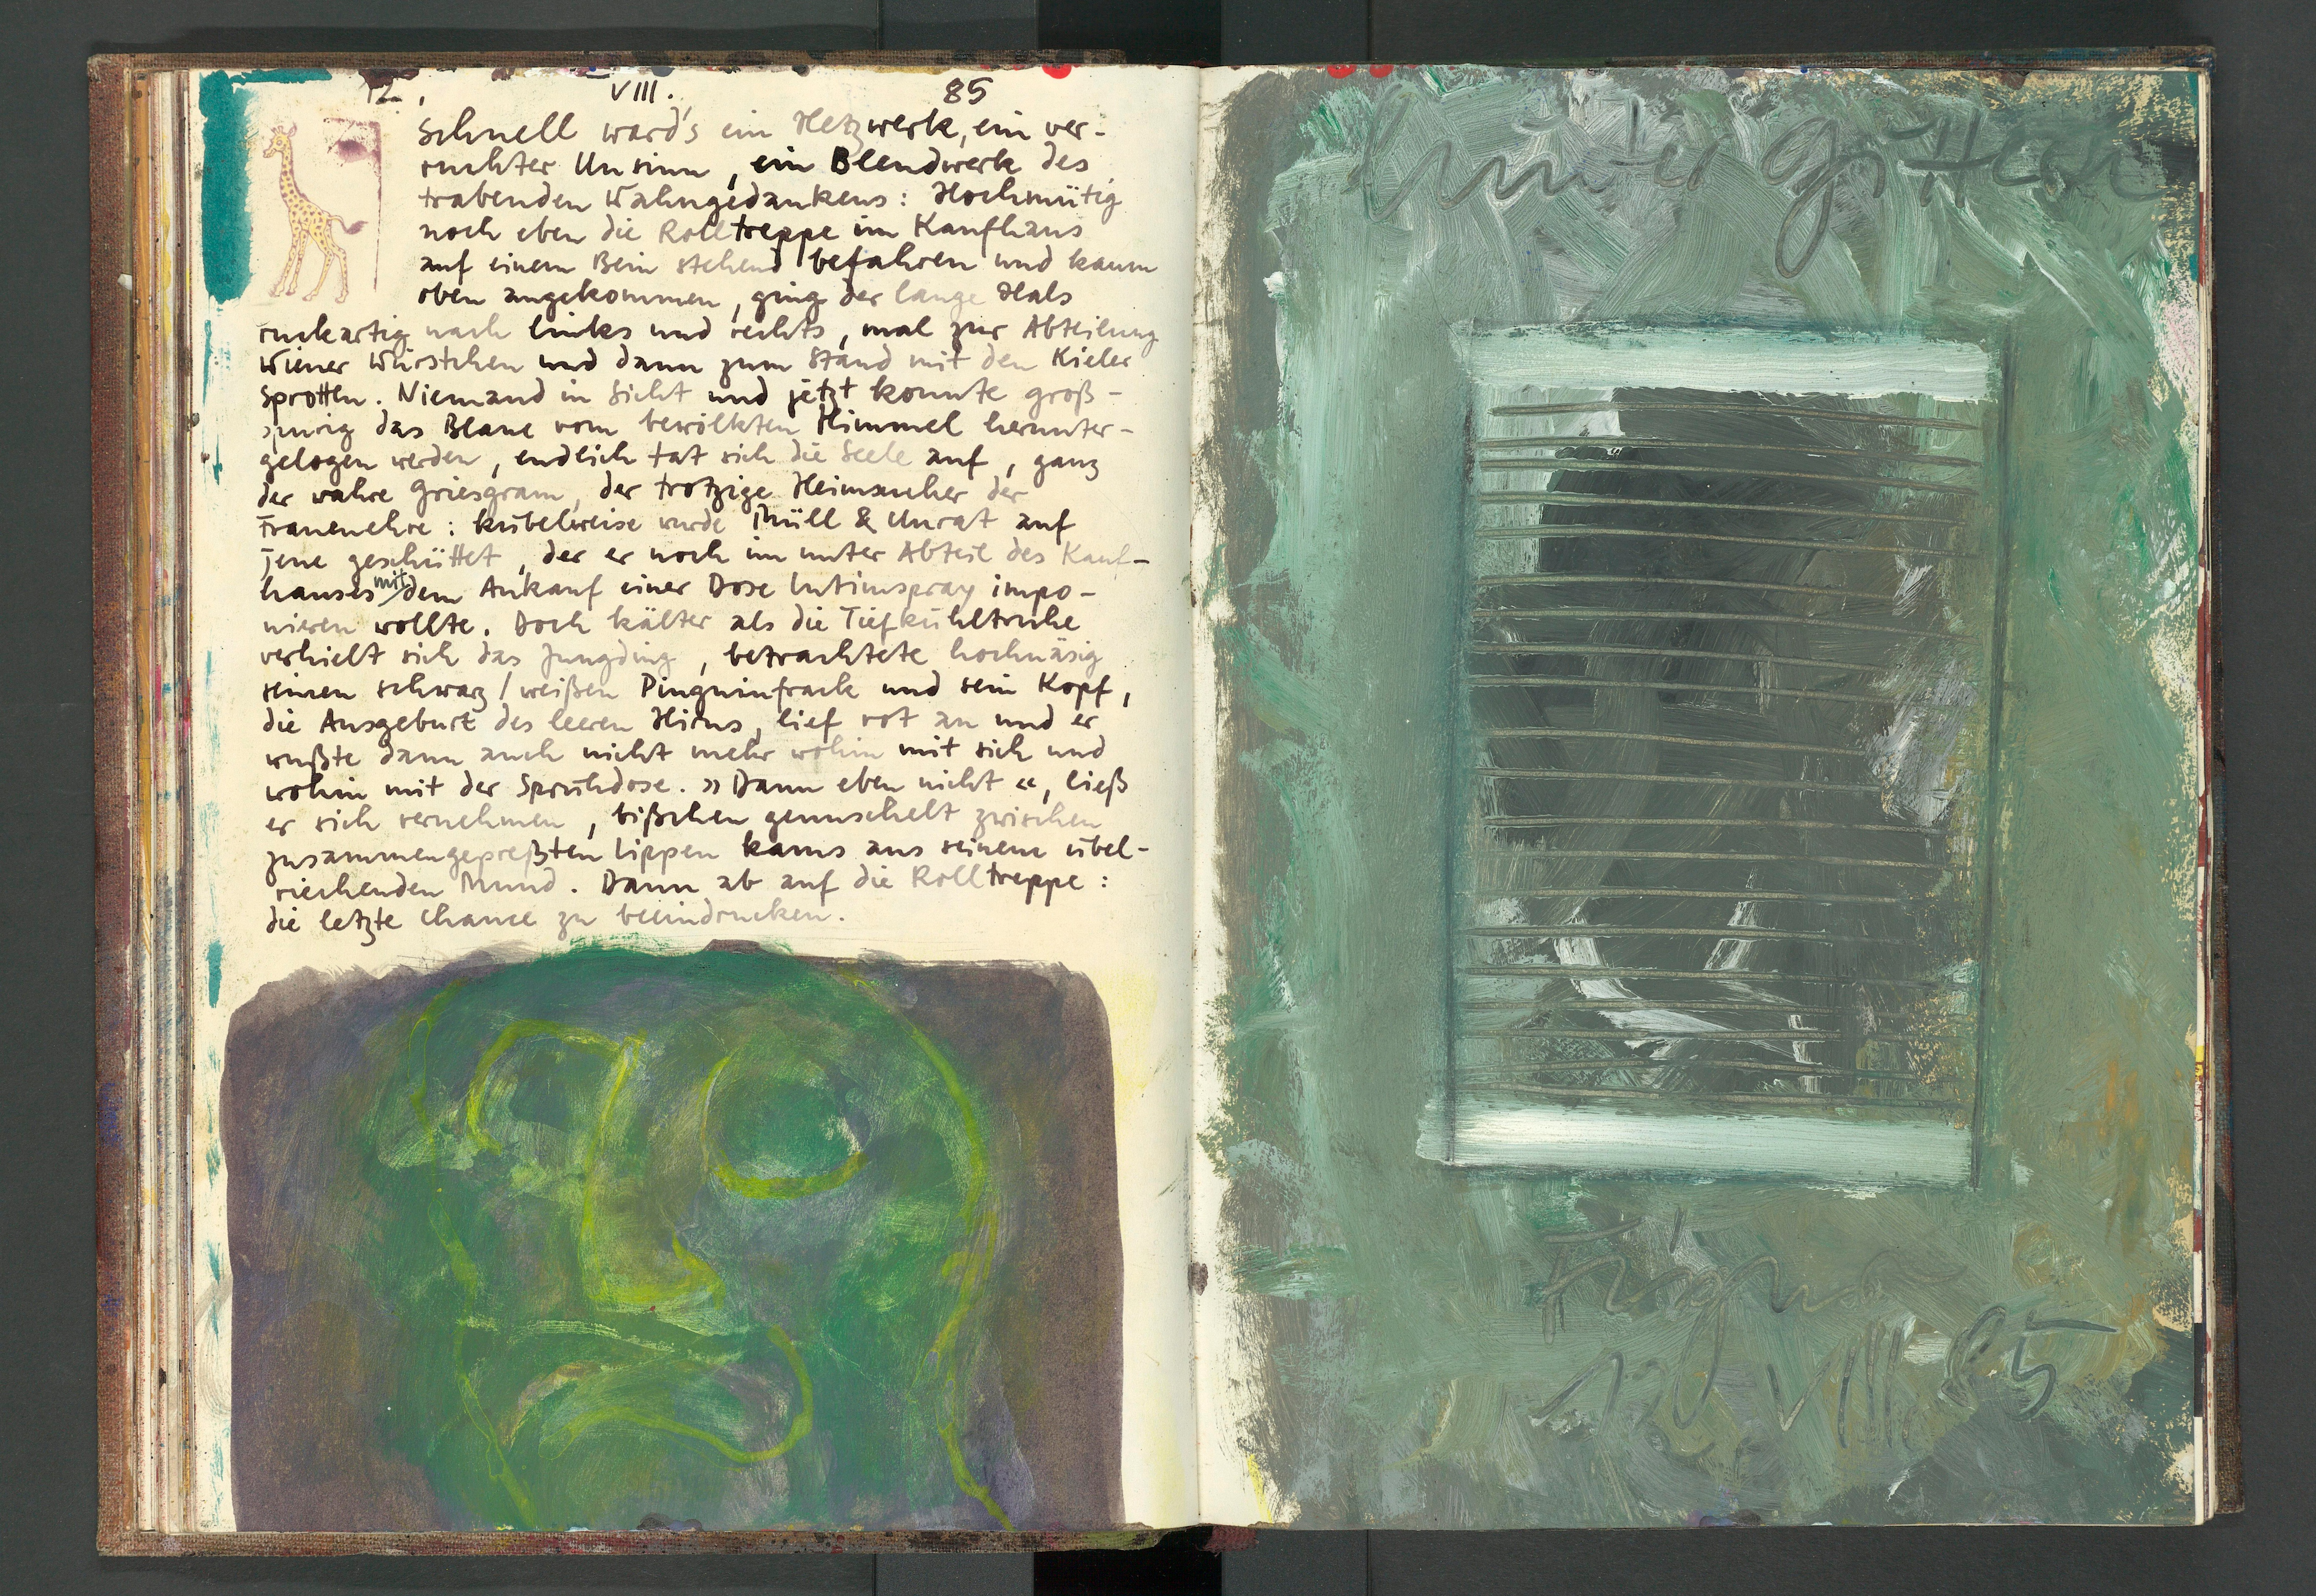 12. VIII. 85
Schnell ward's ein Hetzwerk, ein ver-
ruchter Unsinn, ein Blendwerk des
trabenden Wahngedankens: Hochmütig
noch eben die Rolltreppe im Kaufhaus
auf einem Bein stehend befahren und kaum
oben angekommen, ging der lange Hals
ruckartig nach links und rechts, mal zur Abteilung
Wiener Würstchen und dann zum Stand mit den Kieler
Sprotten. Niemand in Sicht und jetzt konnte groß-
spurig das Blaue vom bewölkten Himmel herunter-
gelogen werden, endlich tat sich die Seele auf, ganz
der wahre Griesgram, der trotzige Heimsucher der
Frauenehre: kübelweise wurde Müll & Unrat auf
jene geschüttet, der er noch im unter Abteil des Kauf-
hauses mit dem Ankauf einer Dose Intimspray impo-
nieren wollte. Doch kälter als die Tiefkühltruhe
verhielt sich das Jungding, betrachtete hochnäsig
seinen schwarz/weißen Pinguinfrack und sein Kopf,
die Ausgeburt des leeren Hirns, lief rot an und er
wußte dann auch nicht mehr wohin mit sich und
wohin mit der Sprühdose. »Dann eben nicht«, ließ
er sich vernehmen, bißchen genuschelt zwischen
zusammengepreßten Lippen kams aus seinem übel-
riechenden Mund. Dann ab auf die Rolltreppe:
die letzte Chance zu beeindrucken.
hinter Gittern
Figur
12 VIII 85